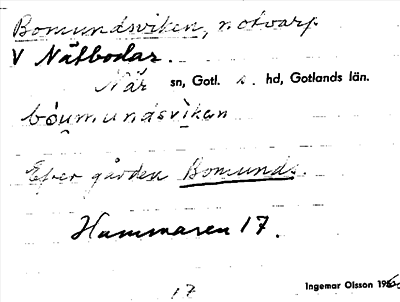 Bomundsviken, notvarp
V Nätbodar.
När sn, Gotl. s. hd, Gotlands län.
bóumundsvikan
Efter gården Bomunds.
Hammaren 17.
17 Ingemar Olsson 196